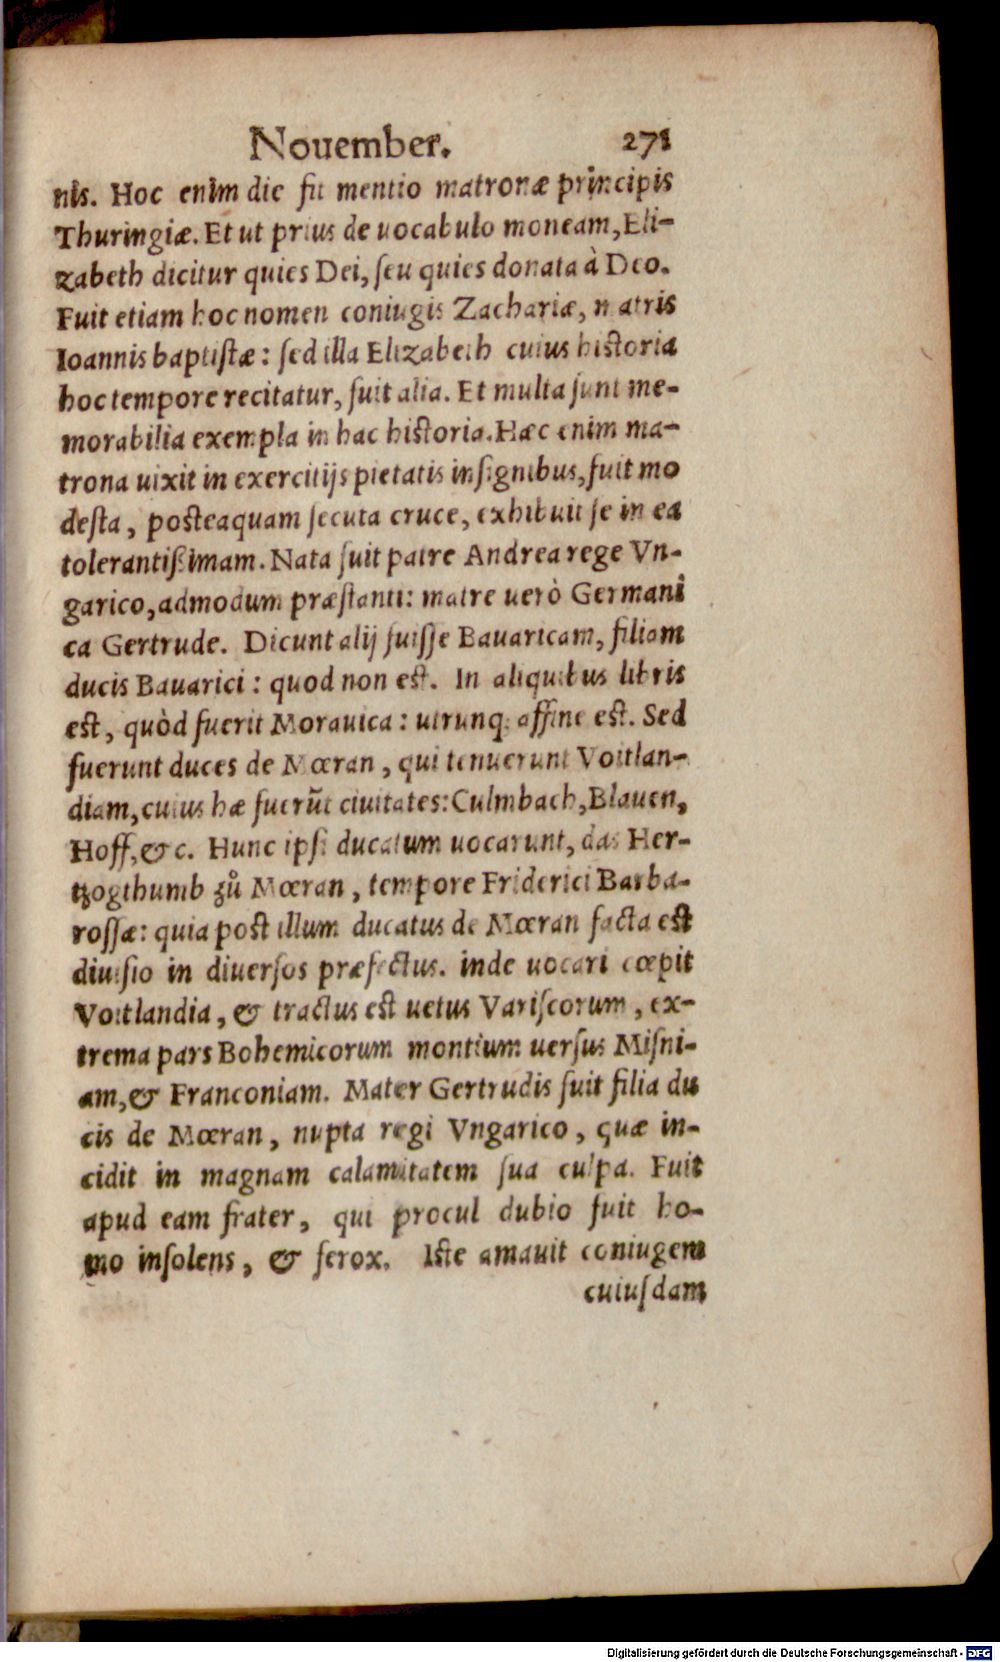 Nouember. 271
nis. Hoc enim die fit mentio matronæ principis
Thuringiæ. Et ut prius de uocabulo moneam, Eli-
zabeth dicitur quies Dei, ſeu quies donata à Deo.
Fuit etiam hoc nomen coniugis Zachariæ, matris
Ioannis baptiſtæ: ſed illa Elizabeth cuius hiſtoria
hoc tempore recitatur, fuit alia. Et multa ſunt me-
morabilia exempla in hac hiſtoria. Hæc enim ma-
trona uixit in exercitijs pietatis inſignibus, fuit mo
deſta, poſteaquam ſecuta cruce, exhibuit ſe in ea
tolerantißimam. Nata fuit patre Andrea rege Vn-
garico, admodum præſtanti: matre uerò Germani
ca Gertrude. Dicunt alij fuiſſe Bauaricam, filiam
ducis Bauarici: quod non eſt. In aliquibus libris
eſt, quòd fuerit Morauica: utrunq; affine eſt. Sed
fuerunt duces de Mœran, qui tenuerunt Voitlan-
diam, cuius hæ fuerũt ciuitates: Culmbach, Blauen,
Hoff, & c. Hunc ipſi ducatum uocarunt, das Her-
tzogthumb zů Mœran, tempore Friderici Barba-
roſſæ: quia poſt illum ducatus de Mœran facta eſt
diuiſio in diuerſos præfectus. inde uocari cœpit
Voitlandia, & tractus eſt uetus Variſcorum, ex-
trema pars Bohemicorum montium uerſus Miſni-
am, & Franconiam. Mater Gertrudis fuit filia du
cis de Mœran, nupta regi Vngarico, quæ in-
cidit in magnam calamitatem ſua culpa. Fuit
apud eam frater, qui procul dubio fuit ho-
mo inſolens, & ferox. Iſte amauit coniugem
cuiuſdam
Digitalisierung gefördert durch die Deutsche Forschungsgemeinschaft - DFG